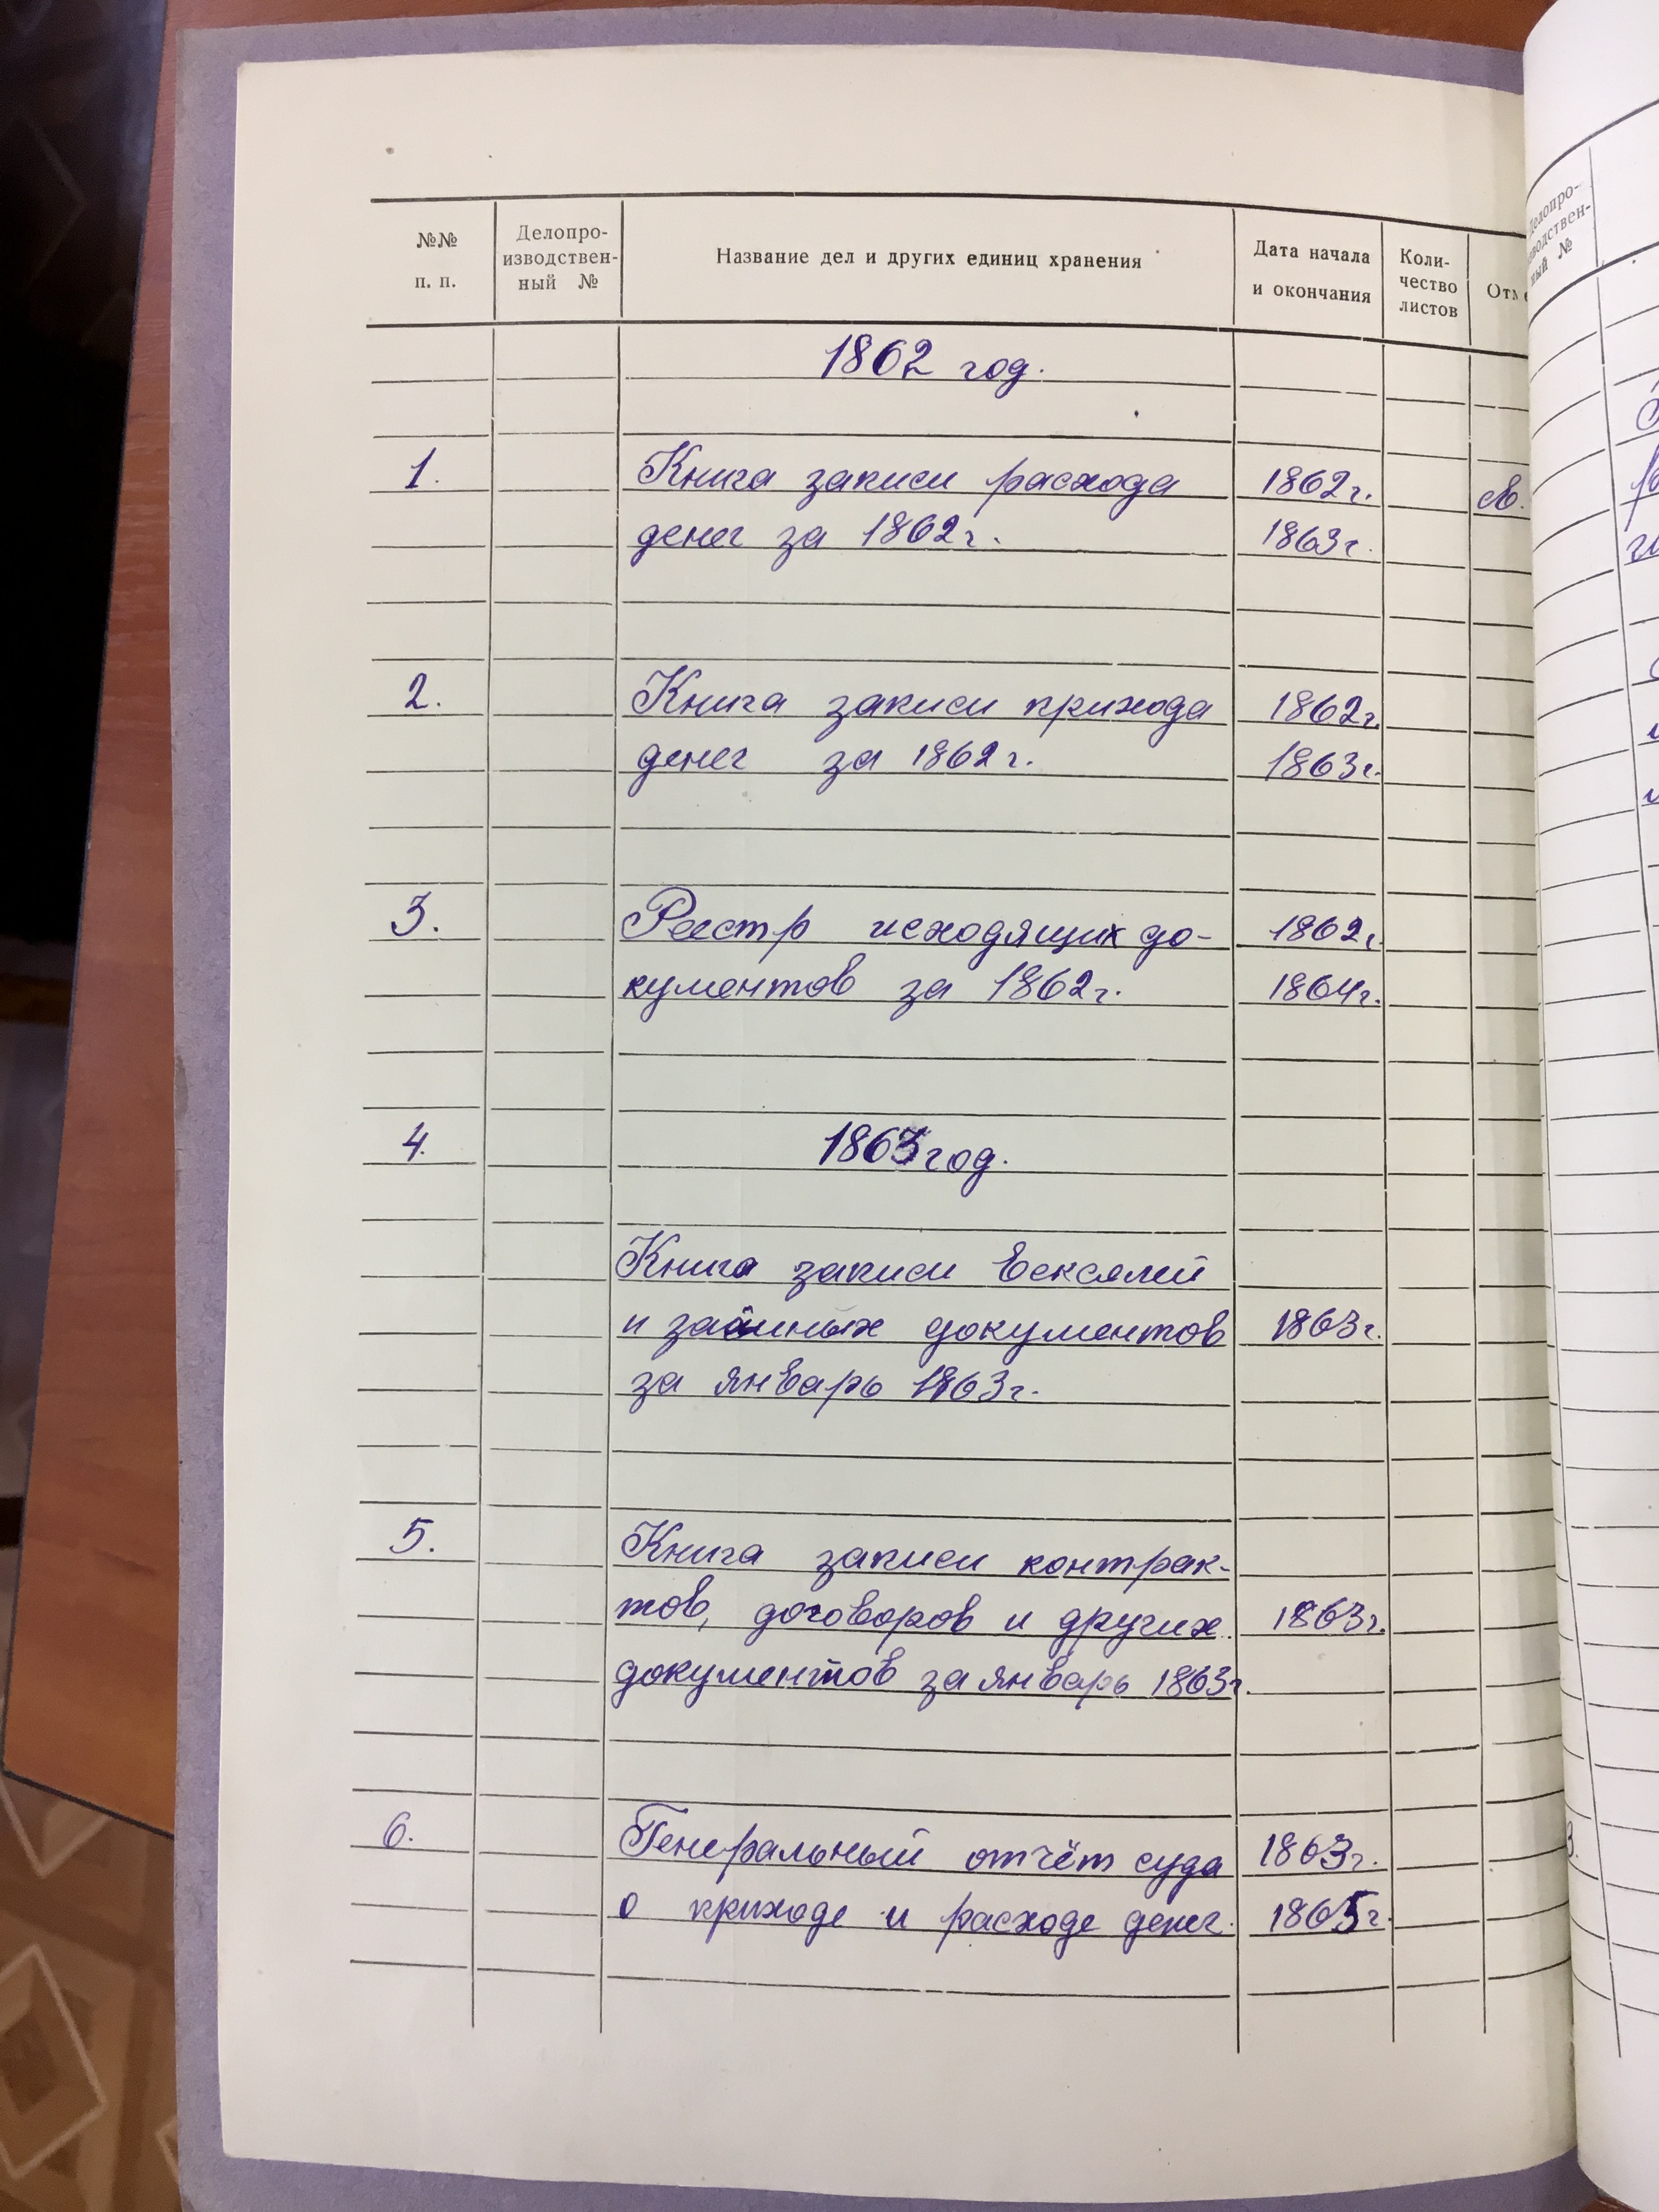 №№ п. п.
Делопро-
изводствен-
ный №
Название дел и других единиц хранения
Дата начала
и окончания
Коли-
чество
листов
1862 год.
1. Книга записи расхода 1862г.
денег за 1862г. 1863г.
2. Книга записи прихода 1862г.
денег за 1862г. 1863г.
3. Реестр исходящих до- 1862г
кументов за 1862г. 1864г.
4. 1863 год.
Книга записи векселей
и заёмных документов 1863г.
за январь 1863г.
5. Книга записи контрак-
тов, договоров и других 1863г.
документов за январь 1863г.
6. Генеральный отчёт суда 1863г.
о приходе и расходе денег. 1865г.